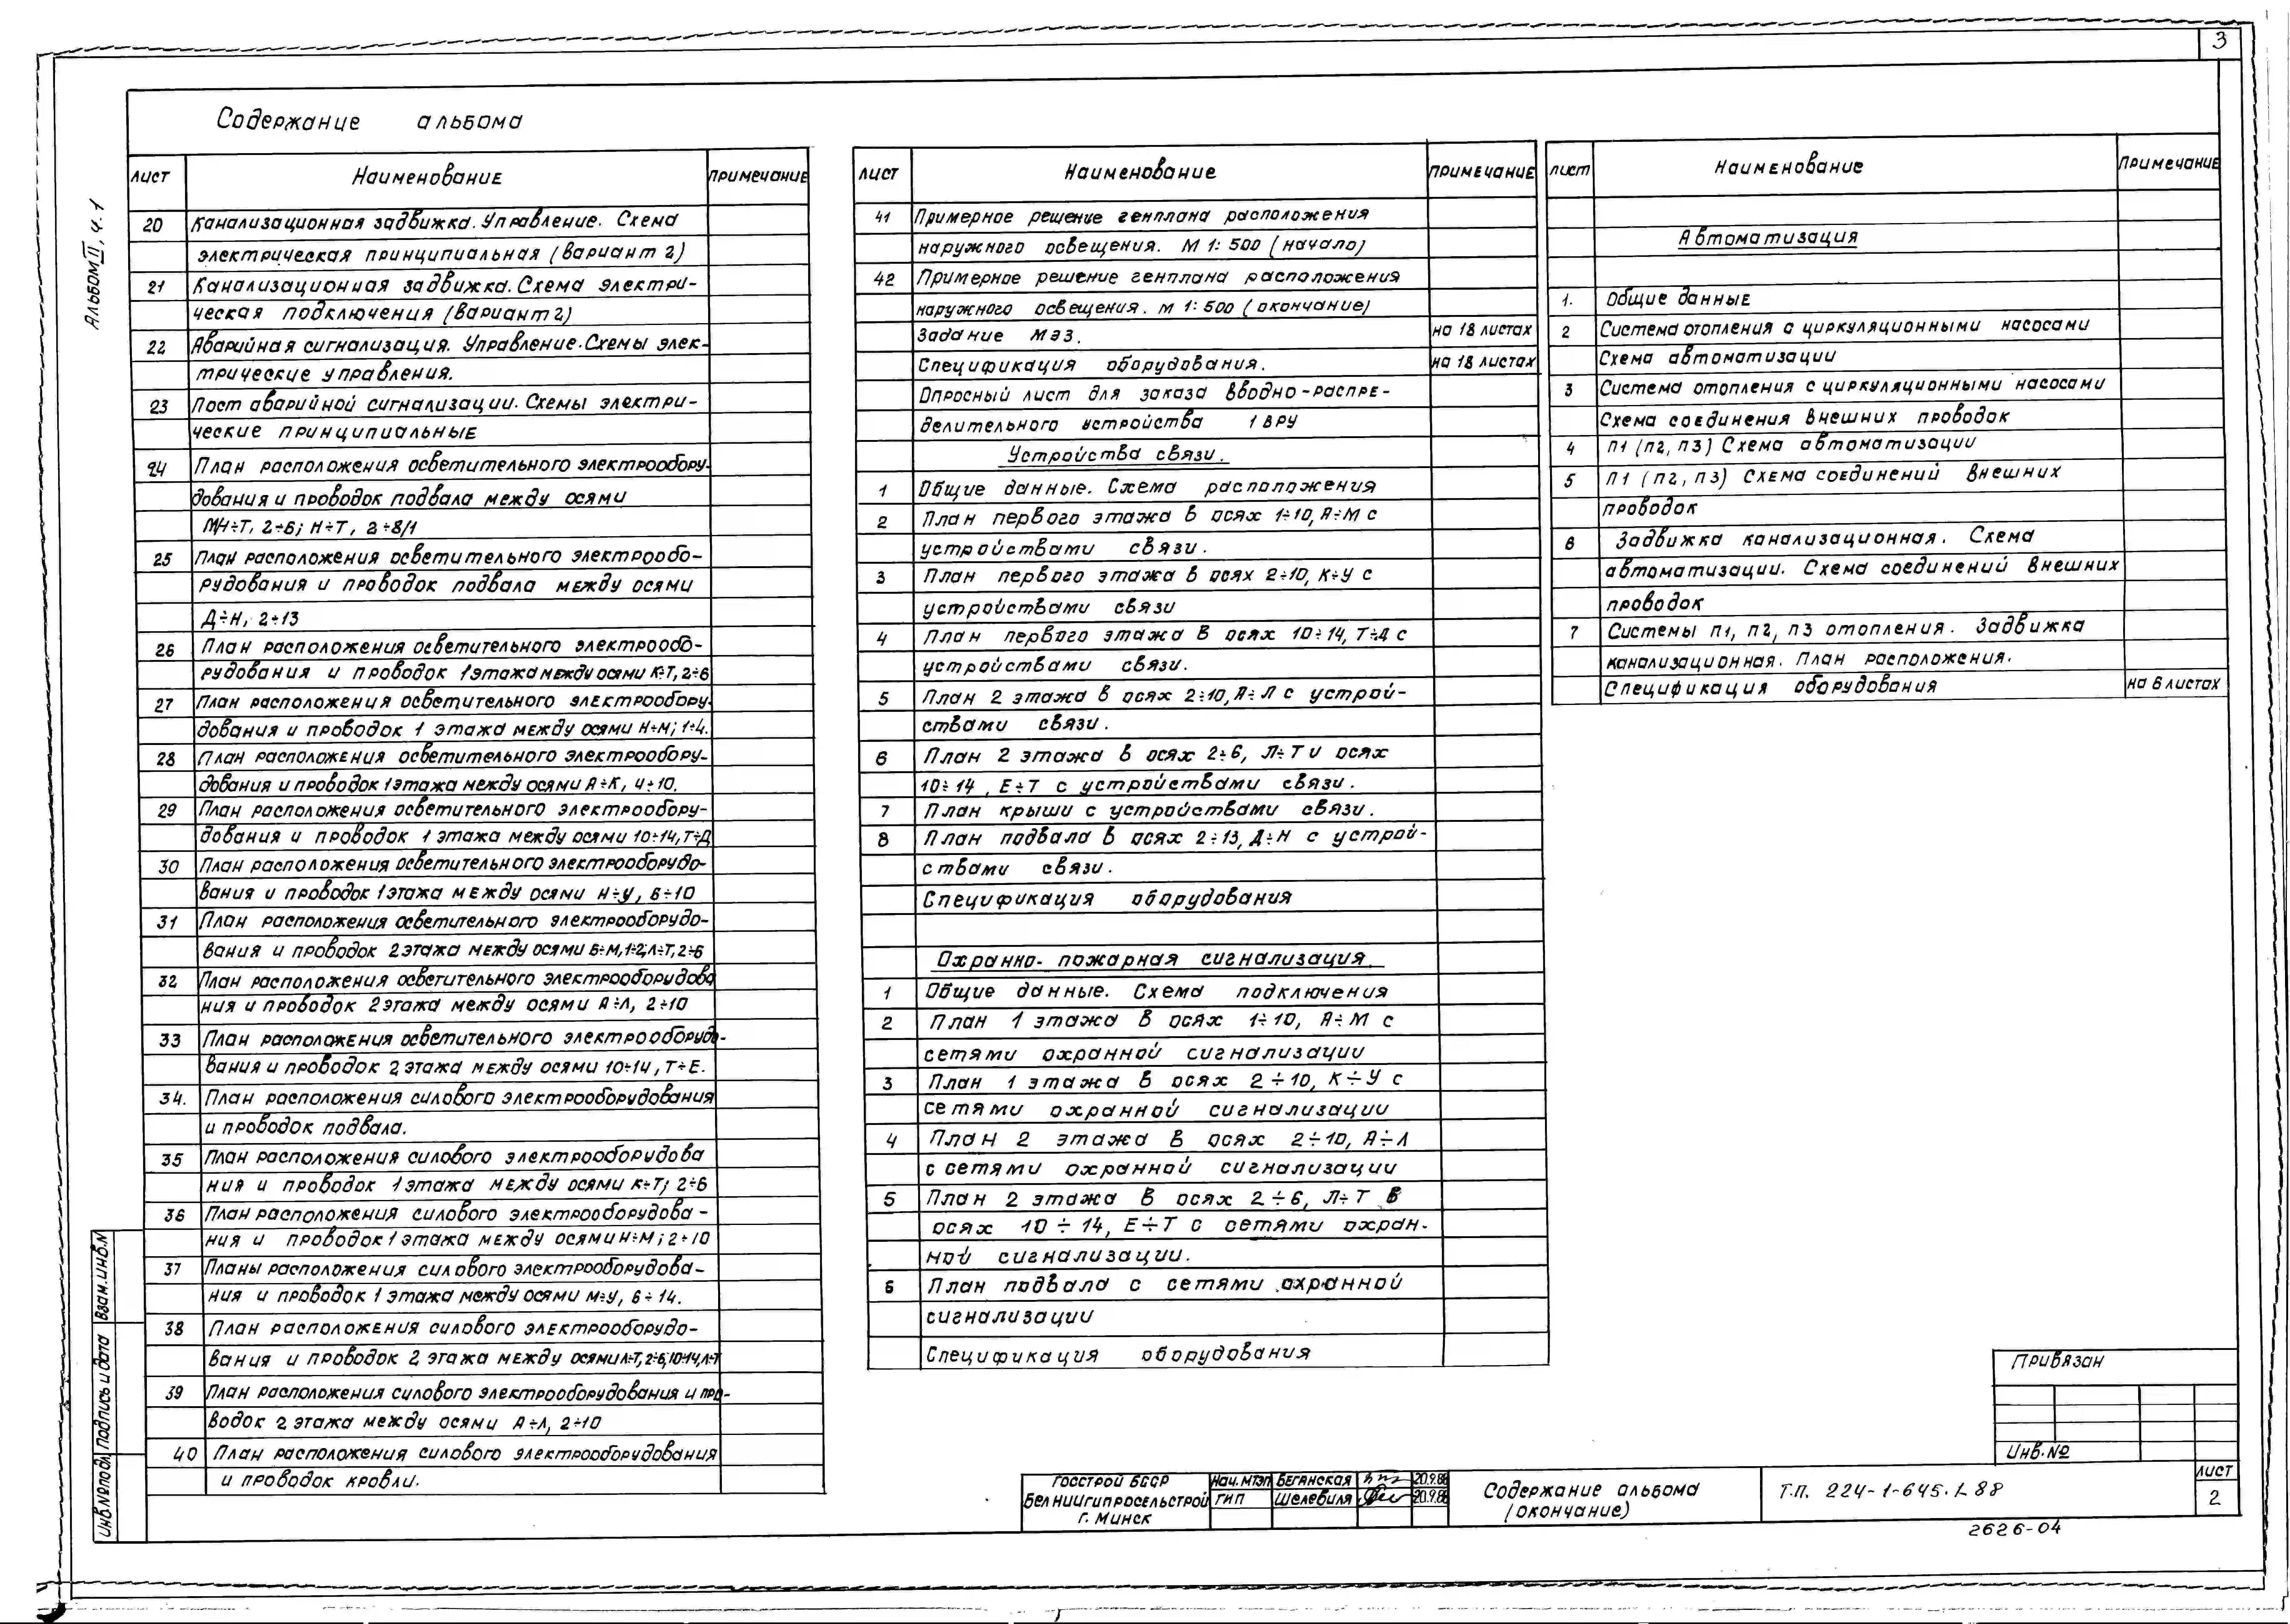 3
Содержание альбома
Альбом III, ч.1
Лист Наименование Примечание
20 Канализационная задвижка. Управление. Схема
электрическая принципиальная (вариант 2)
21 Канализационная задвижка. Схема электри-
ческая подключения (вариант 2)
22 Аварийная сигнализация. Управление. Схемы элек-
трические управления.
23 Пост аварийной сигнализации. Схемы электри-
ческие принципиальные
24 План расположения осветительного электрообору-
дования и проводок подвала между осями
М/Н÷Т, 2÷6; Н÷Т, 2÷8/1
25 План расположения осветительного электрообо-
рудования и проводок подвала между осями
Д÷Н, 2÷13
26 План расположения осветительного электрообо-
рудования и проводок 1 этажа между осями К÷Т, 2÷6
27 План расположения осветительного электрообору-
дования и проводок 1 этажа между осями Н÷М; 1÷4.
28 План расположения осветительного электрообору-
дования и проводок 1 этажа между осями А÷К, 4÷10.
29 План расположения осветительного электрообору-
дования и проводок 1 этажа между осями 10÷14, Т÷Д
30 План расположения осветительного электрооборудо-
вания и проводок 1 этажа между осями Н÷У, 6÷10
31 План расположения осветительного электрооборудо-
вания и проводок 2 этажа между осями Б÷М, 1÷2, Л÷Т, 2÷6
32 План расположения осветительного электрооборудова
ния и проводок 2 этажа между осями А÷Л, 2÷10
33 План расположения осветительного электрооборудо-
вания и проводок 2 этажа между осями 10÷14, Т÷Е.
34. План расположения силового электрооборудования
и проводок подвала.
35 План расположения силового электрооборудова
ния и проводок 1 этажа между осями К÷Т; 2÷6
36 План расположения силового электрооборудова-
ния и проводок 1 этажа между осями Н÷М; 2÷10
37 Планы расположения силового электрооборудова-
ния и проводок 1 этажа между осями М÷У, 6÷14.
38 План расположения силового электрооборудо-
вания и проводок 2 этажа между осями Л÷Т, 2÷6, 10÷14, Л÷Т
39 План расположения силового электрооборудования и про-
водок 2 этажа между осями А÷Л, 2÷10
40 План расположения силового электрооборудования
и проводок кровли.
Лист Наименование Примечание
41 Примерное решение генплана расположения
наружного освещения. М 1:500 (начало)
42 Примерное решение генплана расположения
наружного освещения. М 1:500 (окончание)
Задание МЭЗ. на 18 листах
Спецификация оборудования. на 18 листах
Опросный лист для заказа вводно-распре-
делительного устройства 1 ВРУ
Устройства связи.
1 Общие данные. Схема расположения
2 План первого этажа в осях 1÷10, А÷М с
устройствами связи.
3 План первого этажа в осях 2÷10, К÷У с
устройствами связи
4 План первого этажа в осях 10÷14, Т÷Д с
устройствами связи.
5 План 2 этажа в осях 2÷10, А÷Л с устрой-
ствами связи.
6 План 2 этажа в осях 2÷6, Л÷Т и осях
10÷14, Е÷Т с устройствами связи.
7 План крыши с устройствами связи.
8 План подвала в осях 2÷13, Д÷Н с устрой-
ствами связи.
Спецификация оборудования
Охранно-пожарная сигнализация.
1 Общие данные. Схема подключения
2 План 1 этажа в осях 1÷10, А÷М с
сетями охранной сигнализации
3 План 1 этажа в осях 2÷10, К÷У с
сетями охранной сигнализации
4 План 2 этажа в осях 2÷10, А÷Л
с сетями охранной сигнализации
5 План 2 этажа в осях 2÷6, Л÷Т в
осях 10÷14, Е÷Т с сетями охран-
ной сигнализации.
6 План подвала с сетями охранной
сигнализации
Спецификация оборудования
Лист Наименование Примечание
Автоматизация
1. Общие данные
2 Система отопления с циркуляционными насосами
Схема автоматизации
3 Система отопления с циркуляционными насосами
Схема соединения внешних проводок
4 П1 (П2, П3) Схема автоматизации
5 П1 (П2, П3) Схема соединений внешних
проводок
6 Задвижка канализационная. Схема
автоматизации. Схема соединений внешних
проводок
7 Системы П1, П2, П3 отопления. Задвижка
канализационная. План расположения.
Спецификация оборудования на 6 листах
Привязан
Инв. №
Взам. инв. №
Подпись и дата
Инв № подл
Госстрой БССР
БелНИИгипросельстрой
г. Минск
Нач. МТЭП Беганская 20.9.88
ГИП Шелевиля 20.9.88
Содержание альбома
(окончание)
Т.П. 224-1-645.1-88
Лист
2
2626-04